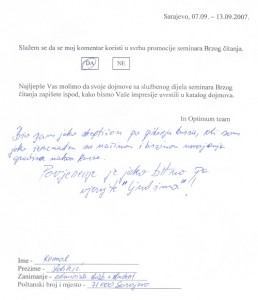 Sarajevo, 07.09. – 13.09.2007.
Slažem se da se moj komentar koristi u svrhu promocije seminara Brzog čitanja.
DA NE
Najljepše Vas molimo da svoje dojmove sa službenog dijela seminara Brzog
čitanja zapišete ispod, kako bismo Vaše impresije uvrstili u katalog dojmova.
In Optimum team
Bio sam jako skeptičan po pitanju kursa, ali sam
jako iznenađen sa načinom i brzinom
gradiva nakon kursa.
Povjerenje je jako bitno pa
vjerujte "ljudima"!!
Ime - Kemal
Prezime -
Zanimanje -
Poštanski broj i mjesto - 71000 Sarajevo